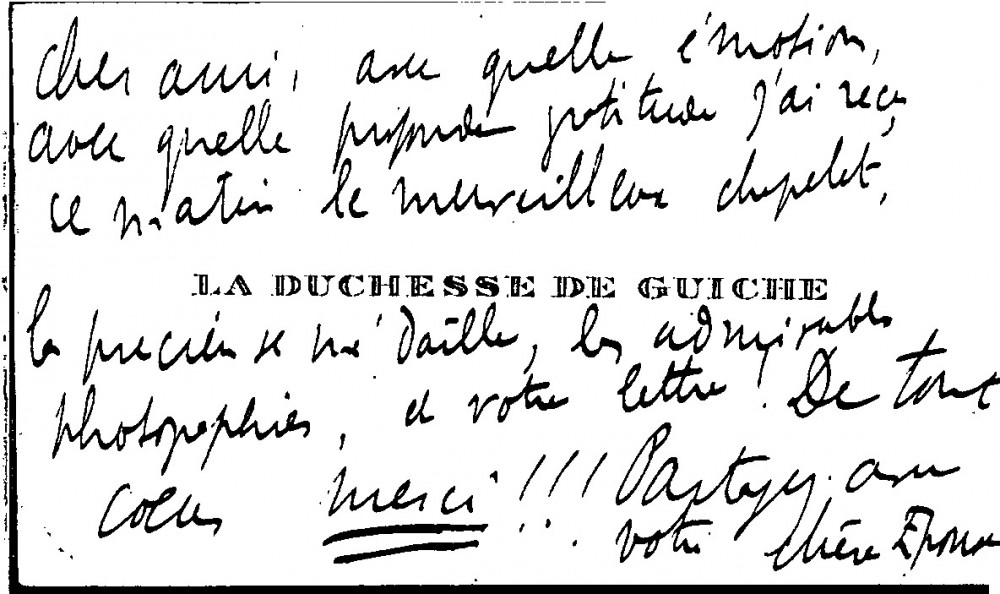 Cher ami, avec quelle émotion,
avec quelle profonde gratitude j'ai reçu
ce matin le merveilleux chapelet,
LA DUCHESSE DE GUICHE
la précieuse médaille, les admirables
photographies, et votre lettre. De tout
coeur merci !!! Partagez avec
votre chère Epouse